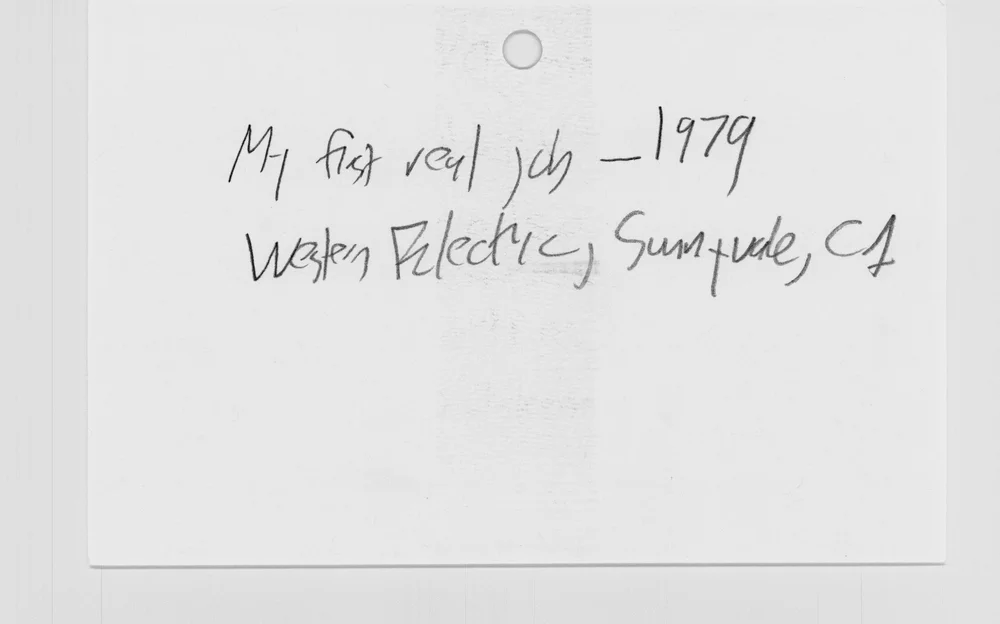 My first real job — 1979
Western Electric, Sunnyvale, CA